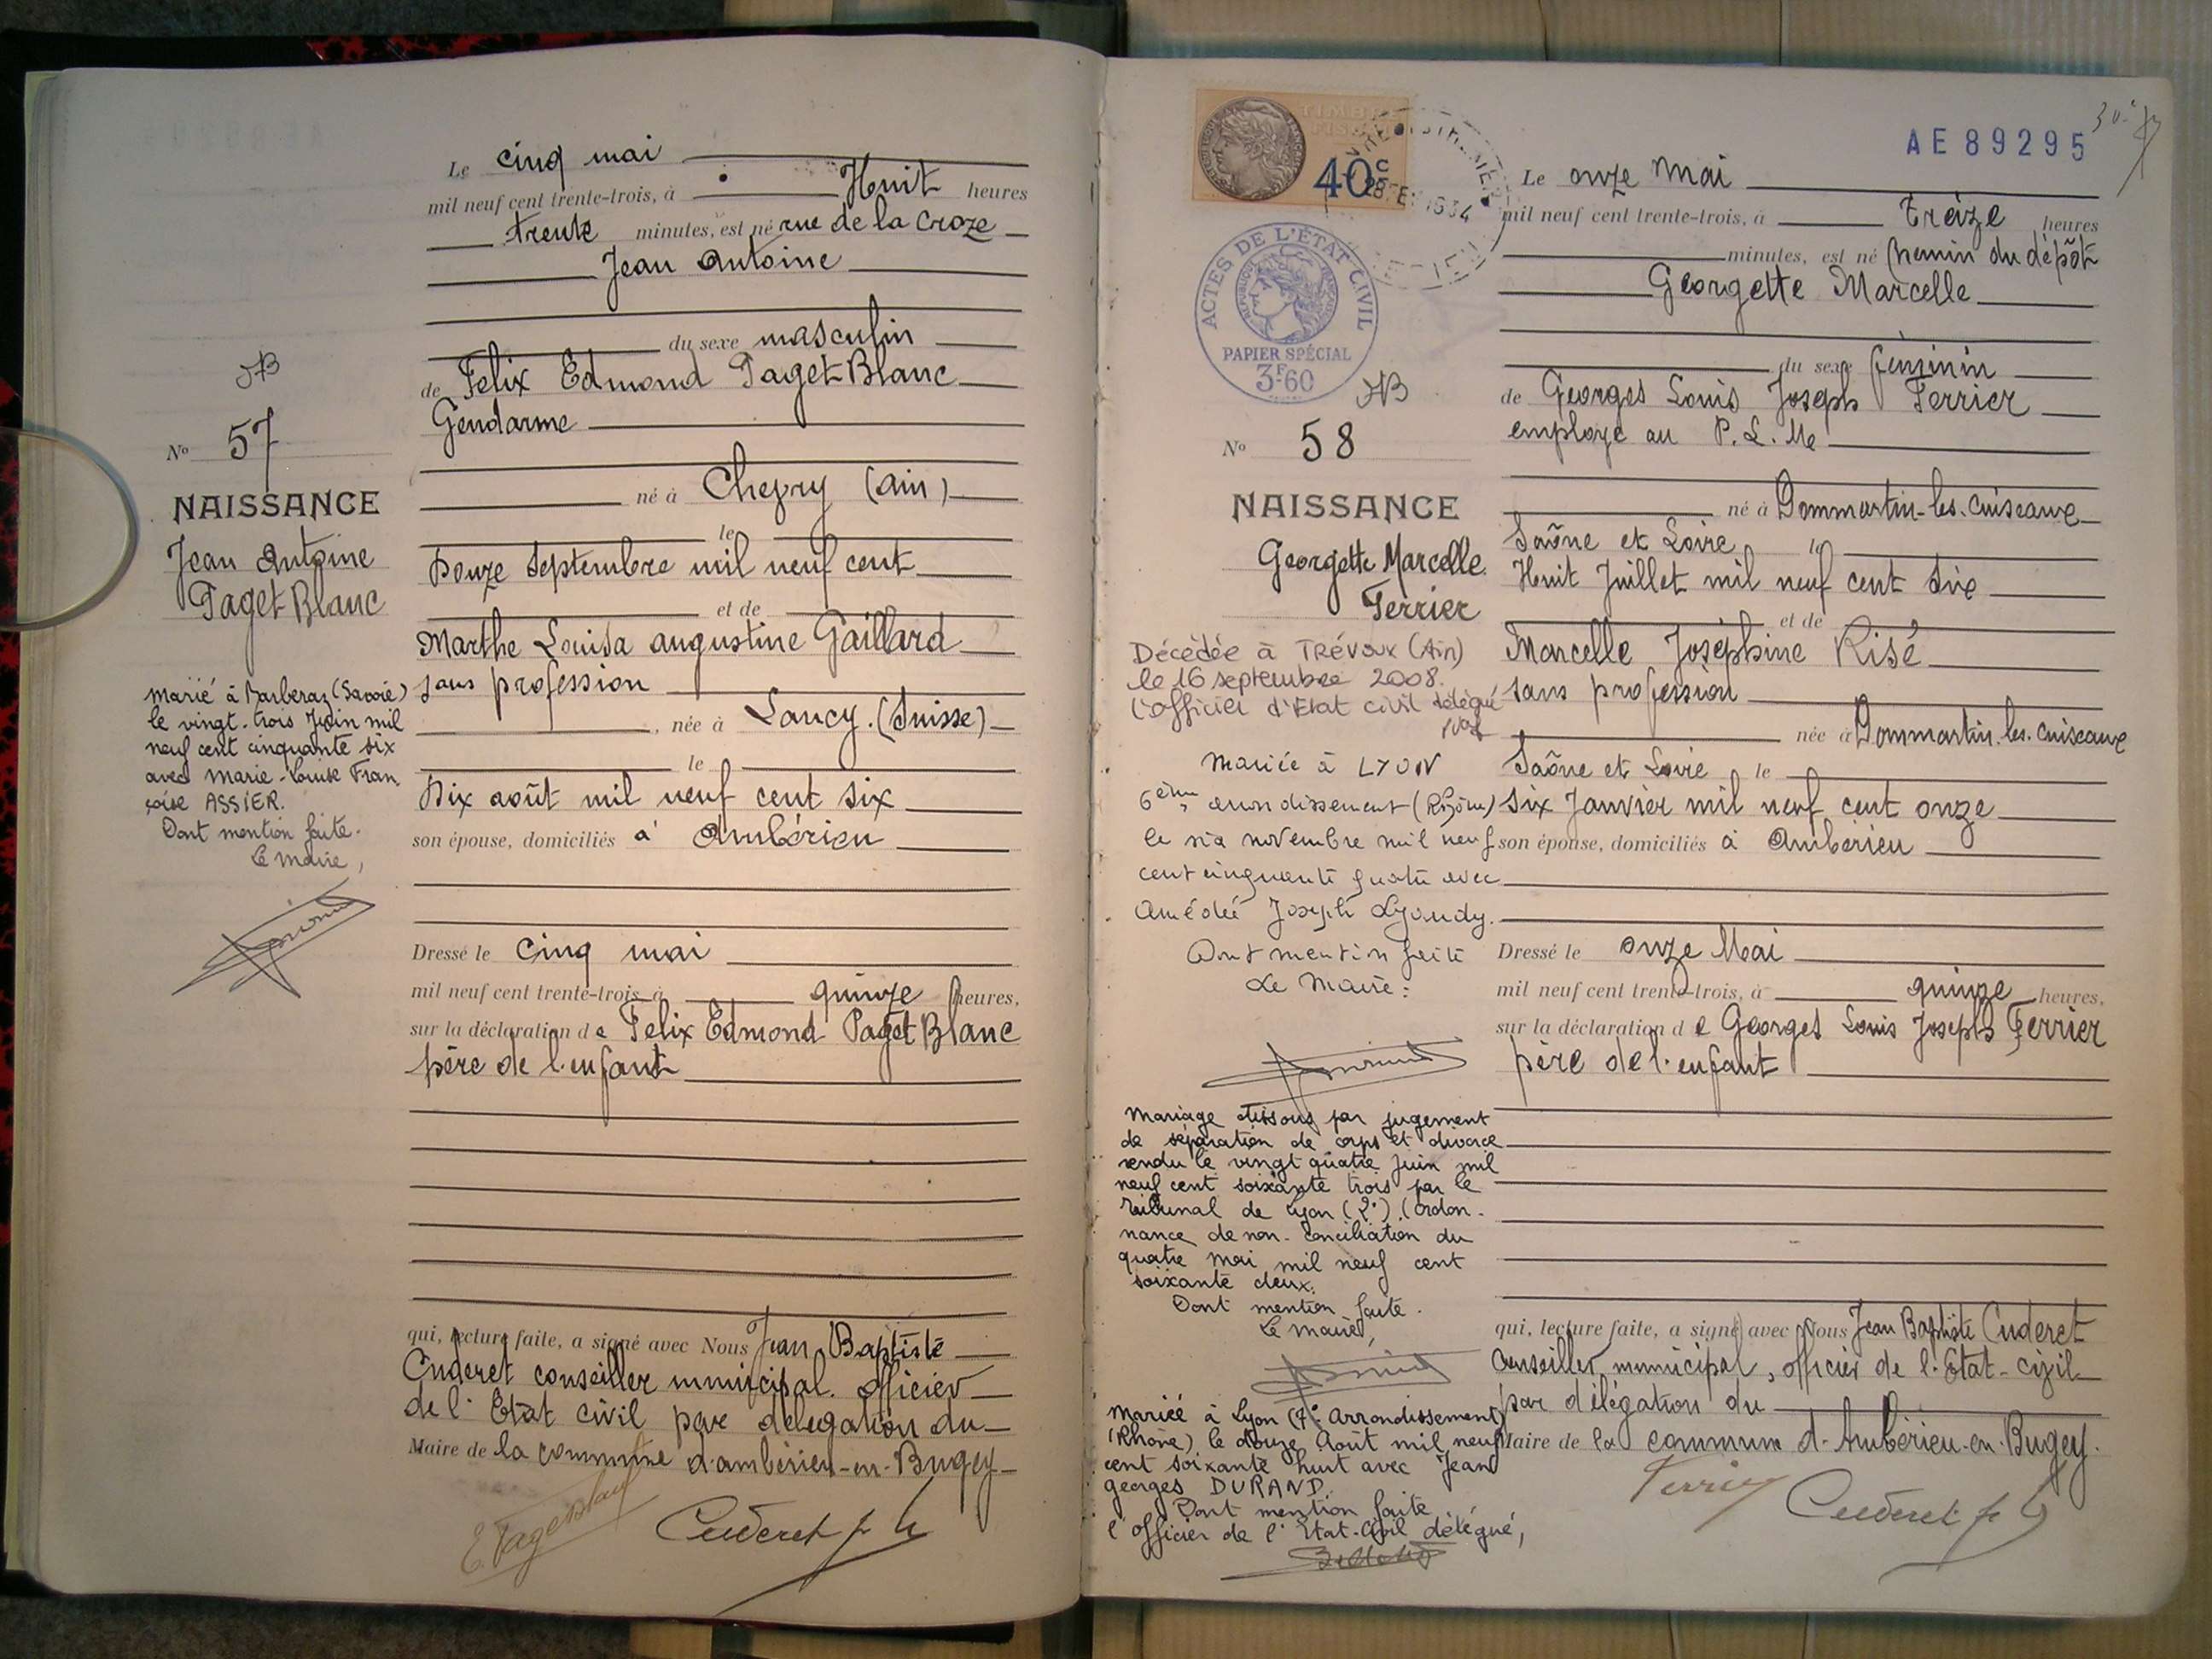 Le cinq mai
mil neuf cent trente-trois, à Huit heures
trente minutes, est né rue de la Croze
Jean Antoine
du sexe masculin
de Felix Edmond Paget-Blanc
Gendarme
né à Chevry (Ain)
le
Douze Septembre mil neuf cent
et de
Marthe Louisa Augustine Gaillard
sans profession
, née à Lancy. (Suisse)
le
Dix août mil neuf cent six
son épouse, domiciliés à Ambérieu
Dressé le cinq mai
mil neuf cent trente-trois, à quinze heures,
sur la déclaration de Felix Edmond Paget Blanc
père de l'enfant
qui, lecture faite, a signé avec Nous Jean Baptiste
Cuderet conseiller municipal. officier
de l'Etat civil par délégation du
Maire de la commune d'ambérieu-en-Bugey
E. Paget Blanc
Cuderet
JB
No 57
NAISSANCE
Jean Antoine
Paget Blanc
Marié à Barberaz (Savoie)
le vingt-trois Juin mil
neuf cent cinquante six
avec Marie-Louise Fran
çoise ASSIER.
Dont mention faite.
Le Maire,
TIMBRE
FISCAL
40c
AE 89295
ACTES DE L'ÉTAT CIVIL
RÉPUBLIQUE FRANÇAISE
PAPIER SPÉCIAL
3F60
JB
No 58
NAISSANCE
Georgette Marcelle
Ferrier
Décédée à TRÉVOUX (Ain)
le 16 septembre 2008.
L'officier d'Etat civil délégué
Mariée à LYON
6ème arrondissement (Rhône)
le six novembre mil neuf
cent cinquante quatre avec
Amédée Joseph Lyaudy.
Dont mention faite
Le Maire:
Mariage dissous par jugement
de séparation de corps et divorce
rendu le vingt quatre Juin mil
neuf cent soixante trois par le
Tribunal de Lyon (2°) (ordon-
nance de non-conciliation du
quatre Mai mil neuf cent
soixante deux.
Dont mention faite.
Le Maire,
Mariée à Lyon (7e Arrondissement)
(Rhône) le douze Août mil neuf
cent soixante huit avec Jean
Georges DURAND.
Dont mention faite
l'officier de l'Etat-Civil délégué,
Le onze Mai
mil neuf cent trente-trois, à treize heures
minutes, est né chemin du dépôt
Georgette Marcelle
du sexe féminin
de Georges Louis Joseph Ferrier
employé au P.L.M.
né à Dommartin-les-Cuiseaux
Saône et Loire le
Huit Juillet mil neuf cent six
et de
Marcelle Joséphine Risé
sans profession
née à Dommartin-les-Cuiseaux
Saône et Loire le
six Janvier mil neuf cent onze
son épouse, domiciliés à Ambérieu
Dressé le onze Mai
mil neuf cent trente-trois, à quinze heures,
sur la déclaration de Georges Louis Joseph Ferrier
père de l'enfant
qui, lecture faite, a signé avec Nous Jean Baptiste Cuderet
conseiller municipal, officier de l'Etat-civil
par délégation du
Maire de la commune d'Ambérieu-en-Bugey.
Ferrier
Cuderet